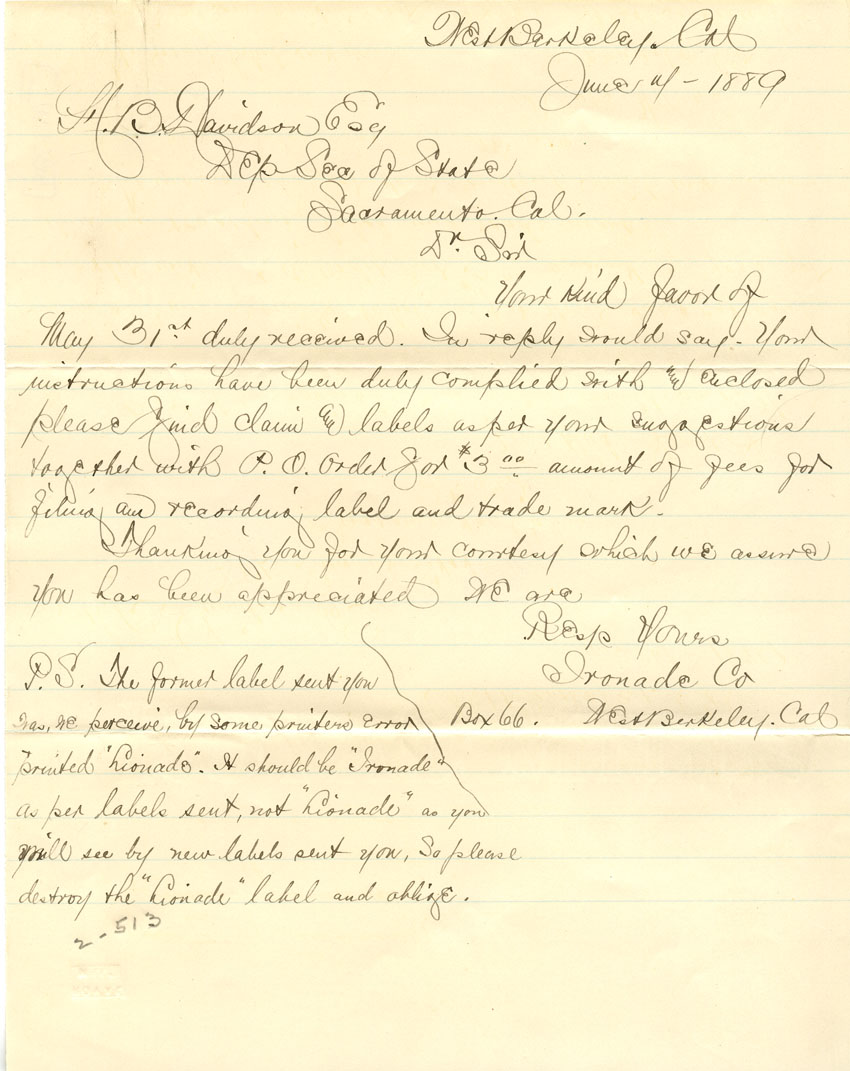 West Berkeley. Cal
June 4 - 1889
H. B. Davidson Esq
Dep Sec of State
Sacramento. Cal.
Dr. Sir
Your kind favor of
May 31st duly received. In reply would say. Your
instructions have been duly complied with & enclosed
please find claim & labels as per your suggestions
together with P. O. Order for $3.00 amount of fees for
filing and recording label and trade mark.
Thanking you for your courtesy which we assure
you has been appreciated We are
Resp Yours
Ironade Co
Box 66. West Berkeley. Cal
P.S. The former label sent you
was, we perceive, by some printers error
printed "Lionade". It should be "Ironade"
as per labels sent, not "Lionade" as you
will see by new labels sent you, So please
destroy the "Lionade" label and oblige.
2-513